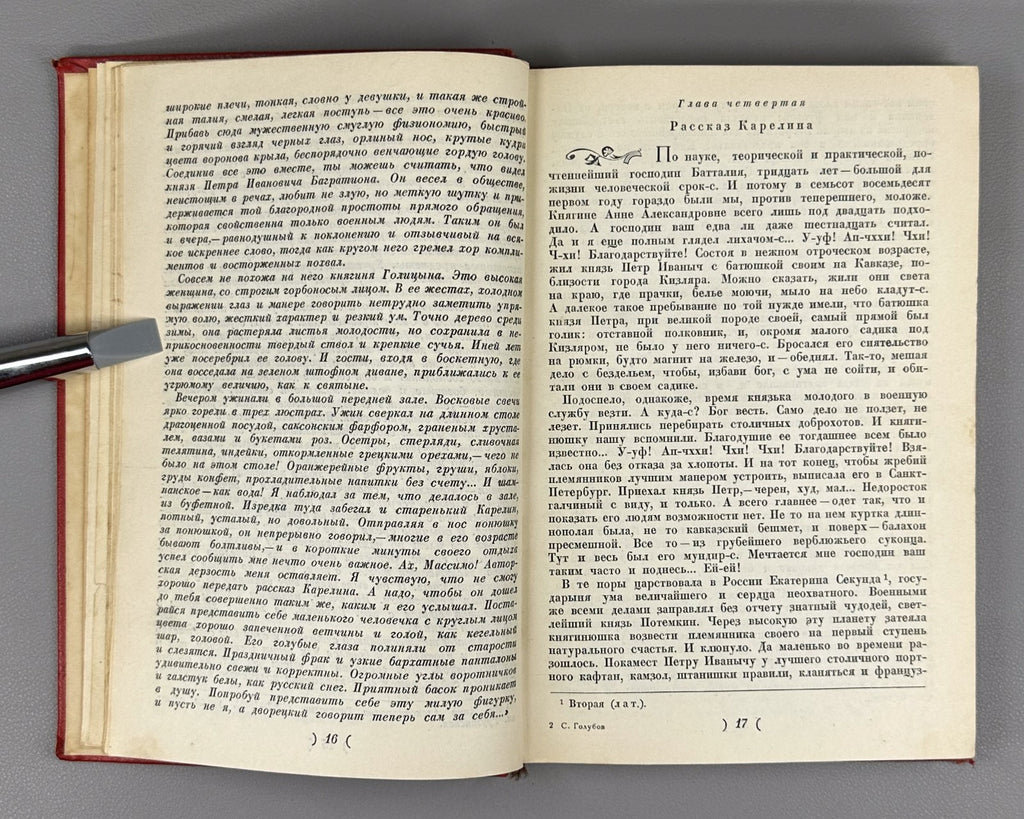 широкие плечи, тонкая, словно у девушки, и такая же строй-
ная талия, смелая, легкая поступь — все это очень красиво.
Прибавь сюда мужественную смуглую физиономию, быстрый
и горячий взгляд черных глаз, орлиный нос, крутые кудри
цвета воронова крыла, беспорядочно венчающие гордую голову.
Соединив все это вместе, ты можешь считать, что видел
князя Петра Ивановича Багратиона. Он весел в обществе,
неистощим в речах, любит не злую, но меткую шутку и при-
держивается той благородной простоты прямого обращения,
которая свойственна только военным людям. Таким он был
и вчера, — равнодушный к поклонению и отзывчивый на вся-
кое искреннее слово, тогда как кругом него гремел хор компли-
ментов и восторженных похвал.
Совсем не похожа на него княгиня Голицына. Это высокая
женщина, со строгим горбоносым лицом. В ее жестах, холодном
выражении глаз и манере говорить нетрудно заметить упря-
мую волю, жесткий характер и резкий ум. Точно дерево среди
зимы, она растеряла листья молодости, но сохранила в не-
прикосновенности твердый ствол и крепкие сучья. Иней лет
уже посеребрил ее голову. И гости, входя в боскетную, где
она восседала на зеленом штофном диване, приближались к ее
угрюмому величию, как к святыне.
Вечером ужинали в большой передней зале. Восковые свечи
ярко горели в трех люстрах. Ужин сверкал на длинном столе
драгоценной посудой, саксонским фарфором, граненым хруста-
лем, вазами и букетами роз. Осетры, стерляди, сливочная
телятина, индейки, откормленные грецкими орехами, — чего не
было на этом столе! Оранжерейные фрукты, груши, яблоки,
груды конфет, прохладительные напитки без счету... И шам-
панское — как вода! Я наблюдал за тем, что делалось в зале,
из буфетной. Изредка туда забегал и старенький Карелин,
потный, усталый, но довольный. Отправляя в нос понюшку
за понюшкой, он непрерывно говорил, — многие в его возрасте
бывают болтливы, — и в короткие минуты своего отдыха
успел сообщить мне нечто очень важное. Ах, Массимо! Автор-
ская дерзость меня оставляет. Я чувствую, что не смогу
хорошо передать рассказ Карелина. А надо, чтобы он дошел
до тебя совершенно таким же, каким я его услышал. Поста-
райся представить себе маленького человечка с круглым лицом
цвета хорошо запеченной ветчины и голой, как кегельный
шар, головой. Его голубые глаза полиняли от старости
и слезятся. Праздничный фрак и узкие бархатные панталоны
удивительно свежи и корректны. Огромные углы воротничков
и галстук белы, как русский снег. Приятный басок проникает
в душу. Попробуй представить себе эту милую фигурку,
и пусть не я, а дворецкий говорит теперь сам за себя...»
) 16 (
Глава четвертая
Рассказ Карелина
По науке, теорической и практической, по-
чтеннейший господин Батталия, тридцать лет — большой для
жизни человеческой срок-с. И потому в семьсот восемьдесят
первом году гораздо были мы, против теперешнего, моложе.
Княгине Анне Александровне всего лишь под двадцать подхо-
дило. А господин ваш едва ли даже шестнадцать считал.
Да и я еще полным глядел лихачом-с... У-уф! Ап-чхи! Чхи!
Ч-хи! Благодарствуйте! Состоя в нежном отроческом возрасте,
жил князь Петр Иваныч с батюшкой своим на Кавказе, по-
близости города Кизляра. Можно сказать, жили они света
на краю, где прачки, белье моючи, мыло на небо кладут-с.
А далекое такое пребывание по той нужде имели, что батюшка
князя Петра, при великой породе своей, самый прямой был
голик: отставной полковник, и, окромя малого садика под
Кизляром, не было у него ничего-с. Бросался его сиятельство
на рюмки, будто магнит на железо, и — обеднял. Так-то, мешая
дело с бездельем, чтобы, избави бог, с ума не сойти, и оби-
тали они в своем садике.
Подоспело, однакоже, время князька молодого в военную
службу везти. А куда-с? Бог весть. Само дело не ползет, не
лезет. Принялись перебирать столичных доброхотов. И княги-
нюшку нашу вспомнили. Благодушие ее тогдашнее всем было
известно... У-уф! Ап-чххи! Чхи! Чхи! Благодарствуйте! Взя-
лась она без отказа за хлопоты. И на тот конец, чтобы жребий
племянников лучшим манером устроить, выписала его в Санкт-
Петербург. Приехал князь Петр, — черен, худ, мал... Недоросток
галчиный с виду, и только. А всего главнее — одет так, что и
показать его людям возможности нет. Не то на нем куртка длин-
нополая была, не то кавказский бешмет, и поверх — балахон
пресменной. Все то — из грубейшего верблюжьего суконца.
Тут и весь был его мундир-с. Мечтается мне господин ваш
таким часто и поднесь... Ей-ей!
В те поры царствовала в России Екатерина Секунда¹, госу-
дарыня ума величайшего и сердца неохватного. Военными
же всеми делами заправлял без отчету знатный чудодей, свет-
лейший князь Потемкин. Через высокую эту планету затеяла
княгинюшка возвести племянника своего на первый ступень
натурального счастья. И клюнуло. Да маленько во времени ра-
зошлось. Покамест Петру Иванычу у лучшего столичного порт-
ного кафтан, камзол, штанишки правили, кланяться и француз-
¹ Вторая (лат.).
2 С. Голубов
) 17 (